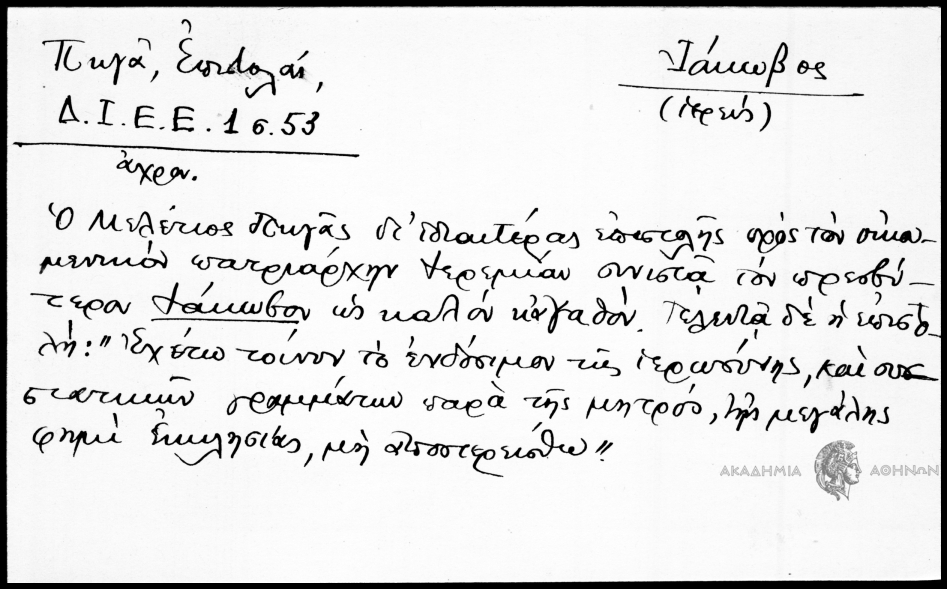 Πηγᾶ, Ἐπιστολαί,
Δ.Ι.Ε.Ε. 1 σ. 53
ἄχρον.
Ἰάκωβος
(ἱερεύς)
Ὁ Μελέτιος Πηγᾶς δι' ἰδιαιτέρας ἐπιστολῆς πρὸς τὸν οἰκου-
μενικὸν πατριάρχην Ἱερεμίαν συνιστᾷ τὸν πρεσβύ-
τερον Ἰάκωβον ὡς καλὸν κἀγαθόν. Τελευτᾷ δὲ ἡ ἐπιστο-
λή: "Ἐχέτω τοίνυν τὸ ἐνδόσιμον τῆς ἱερωσύνης, καὶ συσ-
στατικῶν γραμμάτων παρὰ τῆς μητρός, τῆς μεγάλης
φημὶ Ἐκκλησίας, μὴ ἀποστερείσθω".
ΑΚΑΔΗΜΙΑ ΑΘΗΝΩΝ